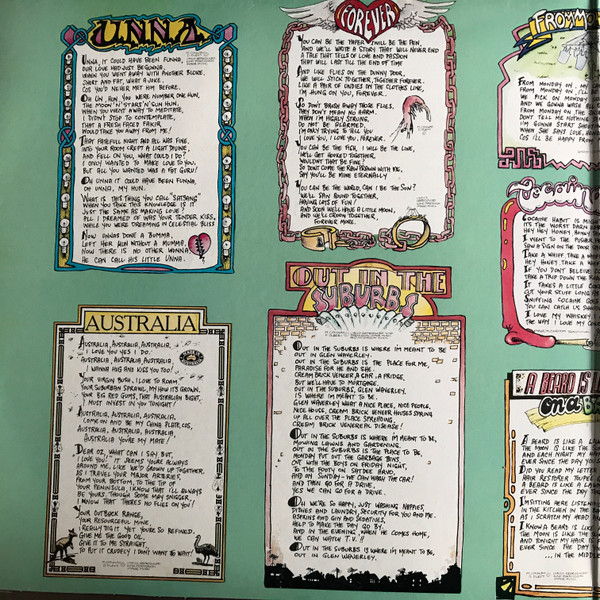 UNNA
UNNA, IT COULD HAVE BEEN FUNNA,
OUR LOVE HAD JUST BEGUNNA,
WHEN YOU WENT AWAY WITH ANOTHER BLOKE,
SHORT AND FAT, WHAT A JOKE.
COS YOU'D NEVER MET HIM BEFORE.
OH UN, ARE YOU WERE NUMBER ONE HUN,
THE MOON 'N' STARS 'N' SUN HUN,
WHEN YOU WENT AWAY TO MEDITATE,
I DIDN'T STOP TO CONTEMPLATE,
THAT A FRESH FACED FAKIR,
WOULD TAKE YOU AWAY FROM ME!
THAT FATEFUL NIGHT AND ALL WAS FINE,
INTO YOUR ROOM CREPT A LIGHT DIVINE,
AND FELL ON YOU, WHAT COULD I DO!
I ONLY WANTED TO MAKE LOVE TO YOU
BUT ALL YOU WANTED WAS A FAT GURU!
OH UNNA IT COULD HAVE BEEN FUNNA,
OH UNNA, MY HUN.
"WHAT IS THIS THING YOU CALL 'SATSANG'"
WHEN YOU TAKE THIS KNOWLEDGE IS IT
JUST THE SAME AS MAKING LOVE!
ALL I DREAMED OF WAS YOUR TENDER KISS,
WHILE YOU WERE DREAMING IN CELESTIAL BLISS
NOW UNNAS DONE A BUMMA,
LEFT HER HUN WITHOUT A MUMMA,
NOW THERE IS NO OTHER WONNA
HE CAN CALL HIS LITTLE UNNA.
FOREVER!
YOU CAN BE THE PAPER I WILL BE THE PEN,
AND WE'LL WRITE A STORY THAT WILL NEVER END
A TALE THAT TELLS OF LOVE AND PASSION
THAT WILL LAST TILL THE END OF TIME
AND LIKE FLIES ON THE DUNNY DOOR,
WE WILL STICK TOGETHER, TOGETHER FOREVER.
LIKE A PAIR OF UNDIES ON THE CLOTHES LINE,
I'M HUNG ON YOU, FOREVER.
SO DON'T BRUSH AWAY THOSE FLIES,
THEY DON'T MEAN NO HARM.
WHEN I'M HIGHLY STRUNG,
DO NOT BE ALARMED
I'M ONLY TRYING TO TELL YOU
I LOVE YOU, I LOVE YOU, FOREVER.
YOU CAN BE THE FISH, I WILL BE THE LINE,
WE'LL GET HOOKED TOGETHER
WOULDN'T THAT BE FINE!
SO DON'T COME THE RAW PRAWN WITH ME,
SAY YOU'LL BE MINE ETERNALLY
YOU CAN BE THE WORLD, CAN I BE THE SUN?
WE'LL SPIN ROUND TOGETHER,
HAVING LOTS OF FUN!
AND SOON WE'LL HAVE A LITTLE MOON,
AND WE'LL GROW TOGETHER,
FOREVER MORE.
AUSTRALIA
AUSTRALIA, AUSTRALIA, AUSTRALIA,
I LOVE YOU YES I DO.
AUSTRALIA, AUSTRALIA, AUSTRALIA,
I WANNA HUG AND KISS YOU TOO!
YOUR VIRGIN BUSH, I LOVE TO ROAM
YOUR SUBURBAN SPRAWL, MY HOW IT'S GROWN,
YOUR BIG RED GUMS, THAT AUSTRALIAN BIGHT,
I MUST INVEST IN YOU TONIGHT!
AUSTRALIA, AUSTRALIA, AUSTRALIA,
COME ON AND BE MY CHINA PLATE, COS,
AUSTRALIA, AUSTRALIA, AUSTRALIA,
AUSTRALIA YOU'RE MY MATE!
DEAR OZ, WHAT CAN I SAY BUT,
I LOVE YOU! IT SEEMS YOU'RE ALWAYS
AROUND ME, LIKE WE'D GROWN UP TOGETHER.
AS I TRAVEL YOUR MAJOR ARTERIES,
FROM YOUR BOTTOM, TO THE TIP OF
YOUR PENINSULA, I KNOW THAT I'LL ALWAYS
BE YOURS. THOUGH SOME MAY SNIGGER,
I KNOW THAT THERE'S NO FLIES ON YOU!
YOUR OUTBACK RANGE,
YOUR RESOURCEFUL MINE,
I REALLY DIG IT YET YOU'RE SO REFINED.
GIVE ME THE GOOD OIL,
GIVE IT TO ME STRAIGHT,
TO PUT IT CRUDELY I DON'T WANT TO WAIT!
OUT IN THE
SUBURBS
OUT IN THE SUBURBS IS WHERE I'M MEANT TO BE
OUT IN GLEN WAVERLEY.
OUT IN THE SUBURBS IS THE PLACE FOR ME,
PARADISE FOR HE AND SHE.
CREAM BRICK VENEER A CAR, A FRIDGE,
BUT WE'LL HAVE TO MORTGAGE.
OUT IN THE SUBURBS, GLEN WAVERLEY,
IS WHERE I'M MEANT TO BE.
GLEN WAVERLEY WHAT A NICE PLACE, NICE PEOPLE,
NICE HOUSE, CREAM BRICK VENEER HOUSES SPRUNG
UP ALL OVER THE PLACE SPREADING,
CREAM BRICK VENEREAL DISEASE!
OUT IN THE SUBURBS IS WHERE I'M MEANT TO BE,
MOWING LAWNS AND GARDENING.
OUT IN THE SUBURBS IS THE PLACE TO BE,
MONDAY PUT OUT THE GARBAGE BINS,
OUT WITH THE BOYS ON FRIDAY NIGHT,
TO THE FOOTY ON SATDEE ARVO,
AND ON SUNDAY - WE CAN WASH THE CAR!
AND THEN GO FOR A DRIVE,
YES WE CAN GO FOR A DRIVE.
OH WE'RE SO HAPPY, JUST WASHING NAPPIES,
DISHES AND LAUNDRY, SECURITY FOR YOU AND ME.
ASPRINS AND GIN AND SEDATIVES,
HELP TO MAKE THE DAY GO BY.
AND IN THE EVENING, WHEN HE COMES HOME,
WE CAN WATCH T.V.!!
OUT IN THE SUBURBS IS WHERE I'M MEANT TO BE,
OUT IN GLEN WAVERLEY.
FROM MON
FROM MONDAY ON, MY
FROM MONDAY ON, I'LL
WE PICK ON MONDAY
AND WE GONNA WASH
FROM MONDAY ON THE
DON'T TELL ME NOTHIN
I'M GONNA START SHOU
WHEN SHE SAYS LOVE
COS I'LL BE HAPPY FROM
Cocaine
COCAINE HABIT IS MIGH
IT'S THE WORST DARN HAB
HEY HEY HONEY
I WENT TO THE PUSHER
SAW A SIGN ON THE DOOR
TAKE A WHIFF TAKE A WH
HEY HONEY TAKE A WHIF
IF YOU DON'T BELIEVE CO
TAKE A TRIP DOWN THE
IT TAKES A LITTLE COC
CUT YOUR STUFF LONG
SNIFFING COCAINE
YOU CAN CATCH US SNI
I LOVE MY WHISKEY
THE WAY I LOVE MY CO
A BEARD IS L
on a B
A BEARD IS LIKE A LAW
THE MOON IS LIKE THE SUN
AND EACH NIGHT MY HAIR
EVER SINCE THE DAY YOU
DID YOU READ MY LETTER
HAIR RESTORER TOUPEE
A BEARD IS LIKE A LAWN
EVER SINCE THE DAY
I'M SITTING HERE LISTENING
IN THE KITCHEN IN THE
AS I SCRATCH MY HEAD
I KNOW A BEARD IS LIKE
THE MOON IS LIKE THE SUN
AND TONIGHT MY HAIR IS
EVER SINCE THE DAY
... IN THE MIDDLE